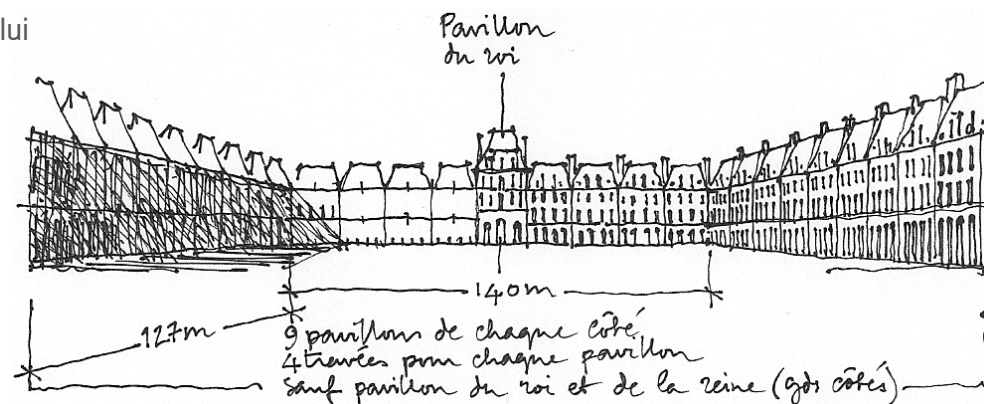 lui
Pavillon
du roi
140m
127m
9 pavillons de chaque côté
4 travées pour chaque pavillon
sauf pavillon du roi et de la reine (gds côtés)